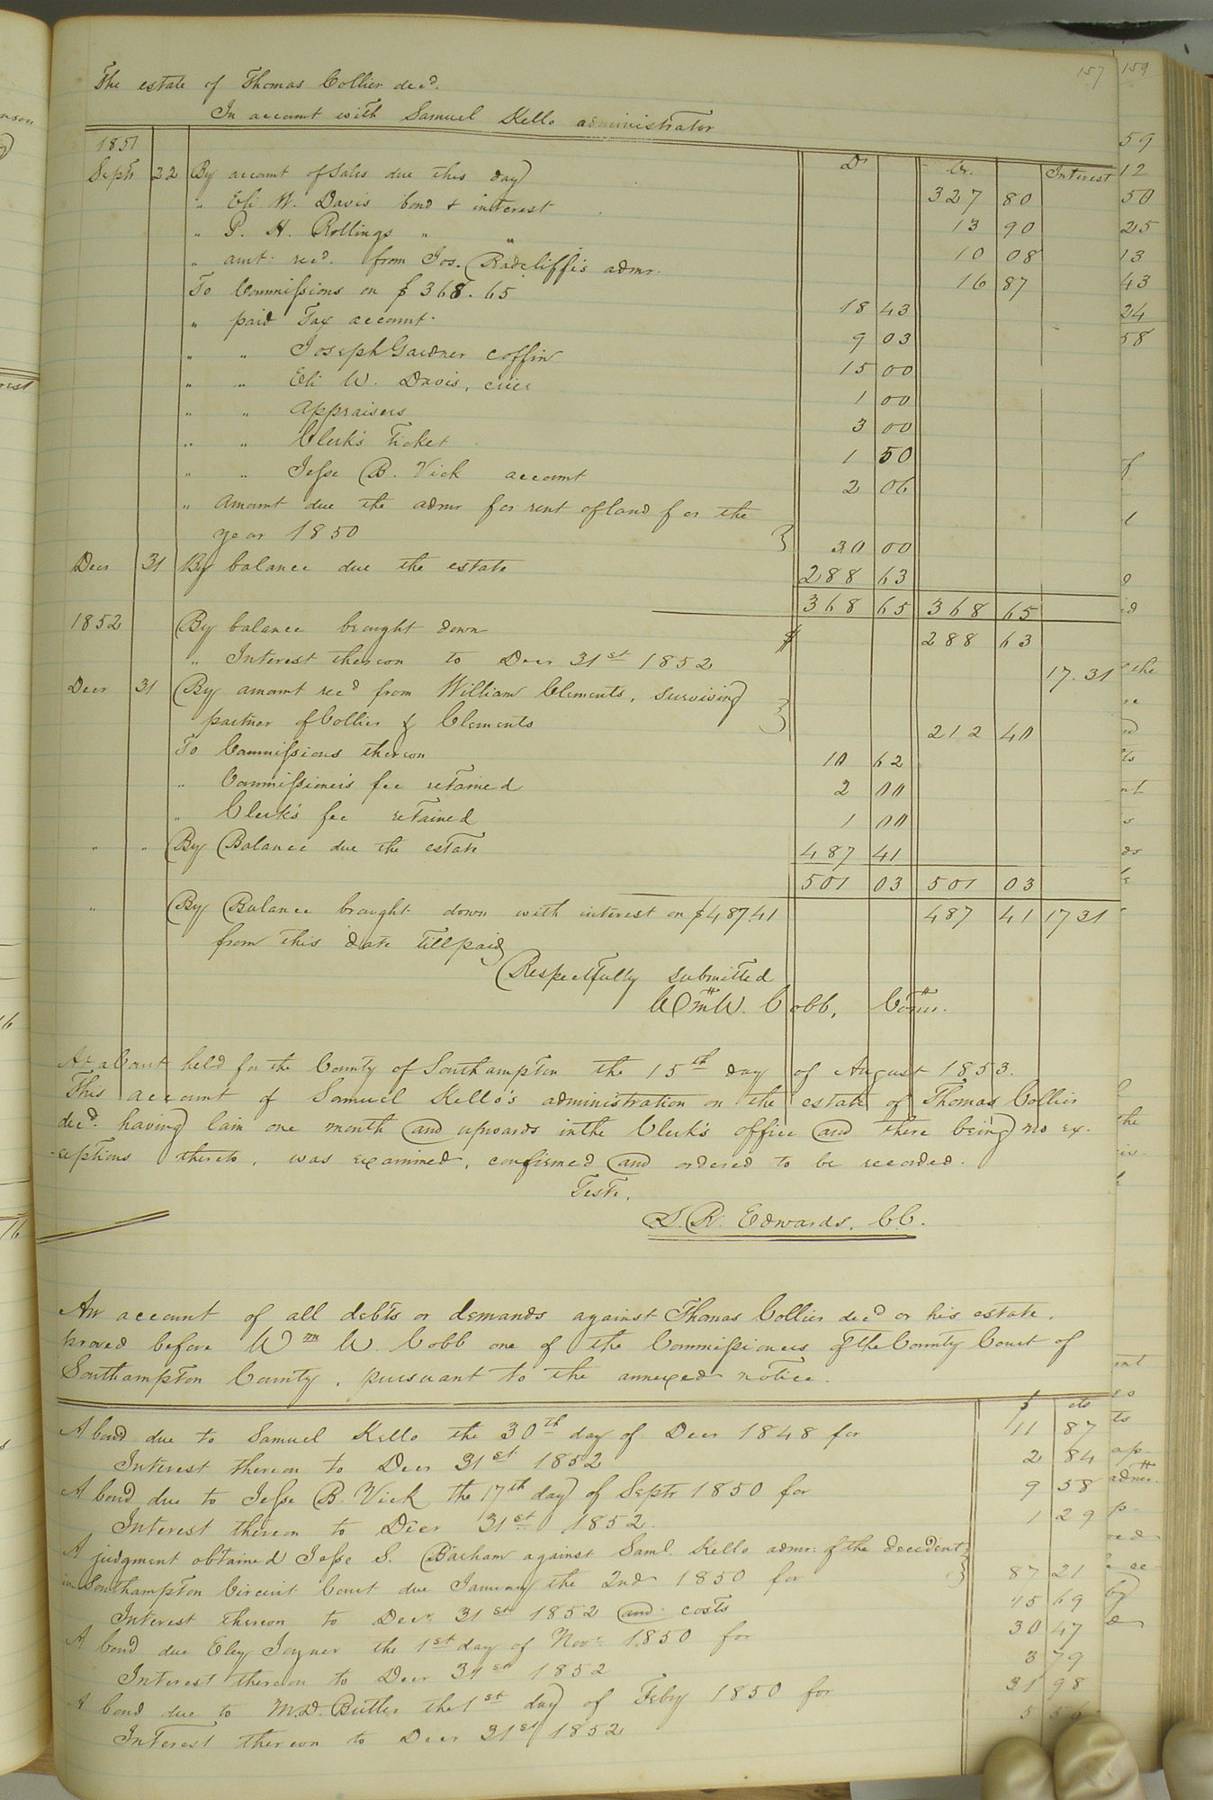 157 159
The estate of Thomas Collier decd.
In account with Samuel Kello administrator
Dr Cr. Interest
1851
Septr 22 By account of Sales due this day 327 80
" Eli W. Davis bond & interest 13 90
" P. H. Rollings " " 10 08
" amt. recd. from Jos. Radcliff's admr. 16 87
To Commissions on $368.65 18 43
" paid Tax account. 9 03
" " Joseph Gardner coffin 15 00
" " Eli W. Davis, crier 1 00
" " Appraisers 3 00
" " Clerk's Ticket 1 50
" " Jesse B. Vick account 2 06
" Amount due the admr for rent of land for the
year 1850 30 00
Decr 31 By balance due the estate 288 63
368 65 368 65
1852 By balance brought down $ 288 63
" Interest thereon to Decr 31st 1852 17.31
Decr 31 By amount recd from William Clements, surviving
partner of Collier & Clements 212 40
To Commissions thereon 10 62
" Commissioner's fee retained 2 00
" Clerk's fee retained 1 00
" " By Balance due the estate 487 41
501 03 501 03
" By Balance brought down with interest on $487.41 487 41 17 31
from this date till paid
Respectfully submitted
Wm W. Cobb, Comr.
At a Court held for the County of Southampton the 15th day of August 1853.
This account of Samuel Kello's administration on the estate of Thomas Collier
decd. having lain one month and upwards in the Clerk's office and there being no ex-
-ceptions thereto, was examined, confirmed and ordered to be recorded.
Teste,
L. R. Edwards, C.C.
An account of all debts or demands against Thomas Collier decd or his estate,
proved before Wm W. Cobb one of the Commissioners of the County Court of
Southampton County, pursuant to the annexed notice.
$ cts
A bond due to Samuel Kello the 30th day of Decr 1848 for 11 87
Interest thereon to Decr 31st 1852 2 84
A bond due to Jesse B. Vick the 17th day of Septr 1850 for 9 58
Interest thereon to Decr 31st 1852 1 29
A judgment obtained Jesse S. Barham against Saml. Kello admr. of the decedent
in Southampton Circuit Court due January the 2nd 1850 for 87 21
Interest thereon to Decr. 31st 1852 and costs 45 69
A bond due Eley Joyner the 1st day of Novr. 1850 for 30 47
Interest thereon to Decr 31st 1852 3 79
A bond due to M.D. Butler the 1st day of Feby 1850 for 31 98
Interest thereon to Decr 31st 1852 5